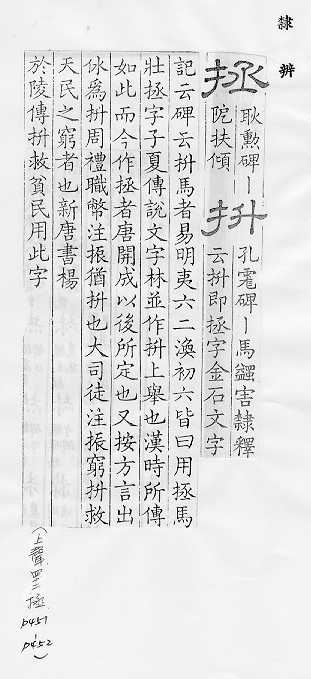 隸辨
拯 耿勳碑｜
阸扶傾
抍 孔碑｜馬蠲害隸釋
云抍即拯字金石文字
記云碑云抍馬者易明夷六二渙初六皆曰用拯馬
壯拯字子夏傳說文字林並作抍上舉也漢時所傳
如此而今作拯者唐開成以後所定也又按方言出
㲻爲抍周禮職幣注振猶抍也大司徒注振窮抍救
天民之窮者也新唐書楊
於陵傳抍救貧民用此字
(上聲四二拯
p451
p452)